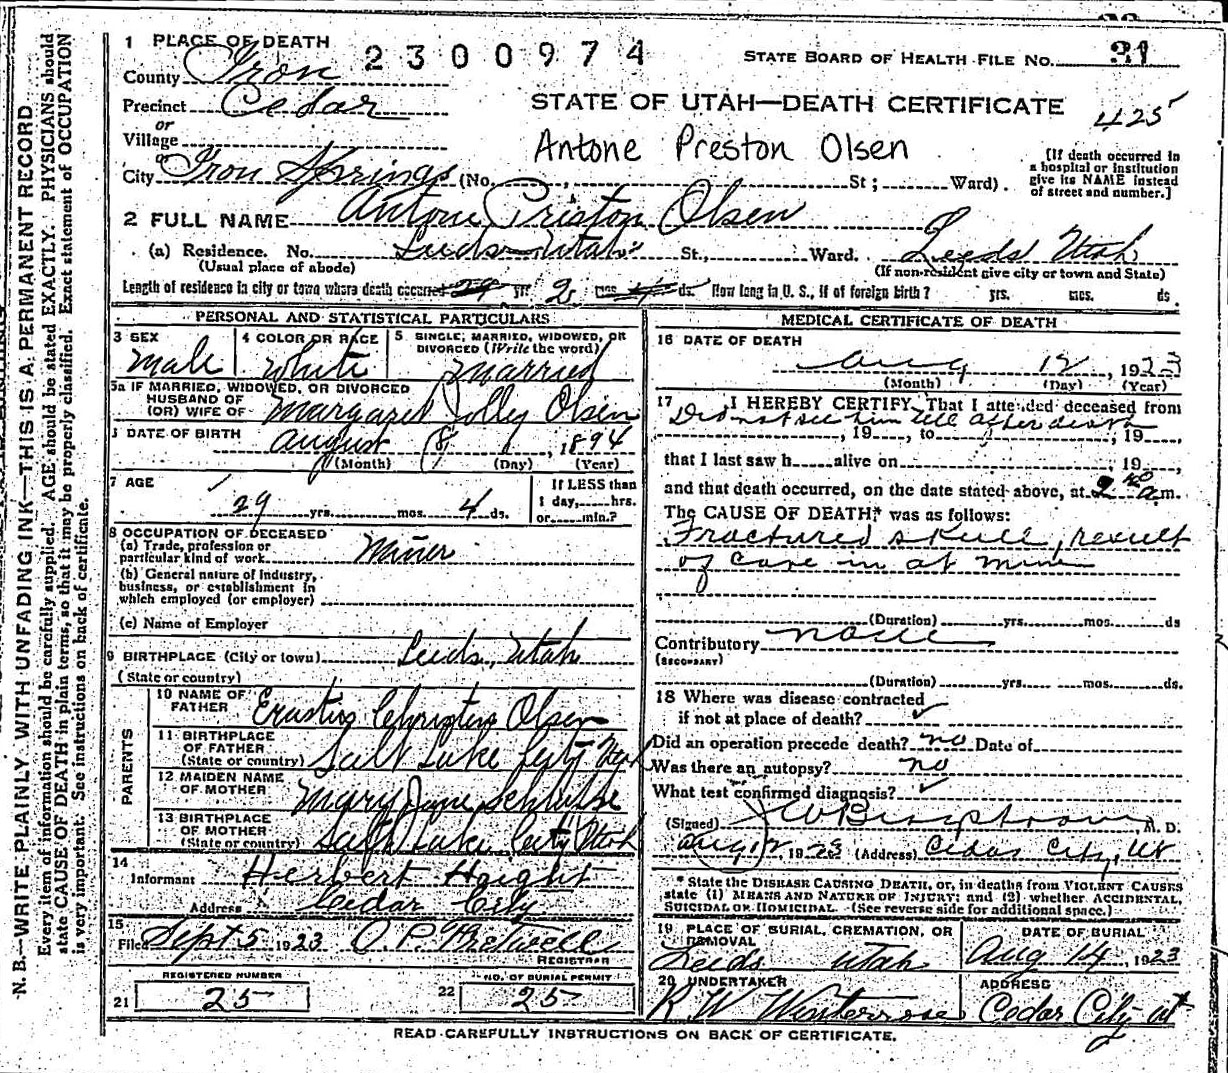 1 PLACE OF DEATH 2300974 STATE BOARD OF HEALTH FILE No. 31
County Iron
Precinct Cedar STATE OF UTAH—DEATH CERTIFICATE 425
or
Village Antone Preston Olsen
or
City Iron Springs (No. St; Ward). [If death occurred in a hospital or institution give its NAME instead of street and number.]
2 FULL NAME Antone Priston Olsen
(a) Residence. No. Leeds Utah St., Ward. Leeds Utah
(Usual place of abode) (If non-resident give city or town and State)
Length of residence in city or town where death occurred 29 yrs. 2 mos. 4 ds. How long in U. S., if of foreign birth? yrs. mos. ds.
PERSONAL AND STATISTICAL PARTICULARS
3 SEX 4 COLOR OR RACE 5 SINGLE, MARRIED, WIDOWED, OR DIVORCED (Write the word)
Male White Married
5a IF MARRIED, WIDOWED, OR DIVORCED
HUSBAND OF
(OR) WIFE OF Margaret Jolley Olsen
DATE OF BIRTH August 8, 1894
(Month) (Day) (Year)
7 AGE If LESS than
1 day, hrs.
29 yrs. mos. 4 ds. or min.?
8 OCCUPATION OF DECEASED
(a) Trade, profession or
particular kind of work Miner
(b) General nature of industry,
business, or establishment in
which employed (or employer)
(c) Name of Employer
9 BIRTHPLACE (City or town) Leeds, Utah
(State or country)
PARENTS
10 NAME OF FATHER Erastus Christins Olsen
11 BIRTHPLACE OF FATHER
(State or country) Salt Lake City Utah
12 MAIDEN NAME OF MOTHER Mary Jane
13 BIRTHPLACE OF MOTHER
(State or country) Salt Lake City Utah
14
Informant Herbert Haight
Address Cedar City
15
Filed Sept 5 1923 O P Fretwell
REGISTRAR
REGISTERED NUMBER NO. OF BURIAL PERMIT
21 25 22 25
MEDICAL CERTIFICATE OF DEATH
16 DATE OF DEATH
Aug 12, 1923
(Month) (Day) (Year)
17 I HEREBY CERTIFY, That I attended deceased from
Did not see him till after death
, 19 , to , 19 ,
that I last saw h alive on , 19 ,
and that death occurred, on the date stated above, at 9 a.m.
The CAUSE OF DEATH* was as follows:
Fractured skull, result
of cave in at mine
(Duration) yrs. mos. ds
Contributory none
(SECONDARY)
(Duration) yrs. mos. ds.
18 Where was disease contracted
if not at place of death? ✓
Did an operation precede death? no Date of
Was there an autopsy? no
What test confirmed diagnosis? ✓
(Signed) , M. D.
Aug 12 1923 (Address) Cedar City, Ut
* State the DISEASE CAUSING DEATH, or, in deaths from VIOLENT CAUSES
state (1) MEANS AND NATURE OF INJURY; and (2) whether ACCIDENTAL,
SUICIDAL OR HOMICIDAL. (See reverse side for additional space.)
19 PLACE OF BURIAL, CREMATION, OR REMOVAL DATE OF BURIAL
Leeds Utah Aug 14, 1923
20 UNDERTAKER ADDRESS
R W Winterrose Cedar City ut
READ CAREFULLY INSTRUCTIONS ON BACK OF CERTIFICATE.
N. B.—WRITE PLAINLY, WITH UNFADING INK—THIS IS A PERMANENT RECORD
Every item of information should be carefully supplied. AGE should be stated EXACTLY. PHYSICIANS should
state CAUSE OF DEATH in plain terms, so that it may be properly classified. Exact statement of OCCUPATION
is very important. See instructions on back of certificate.